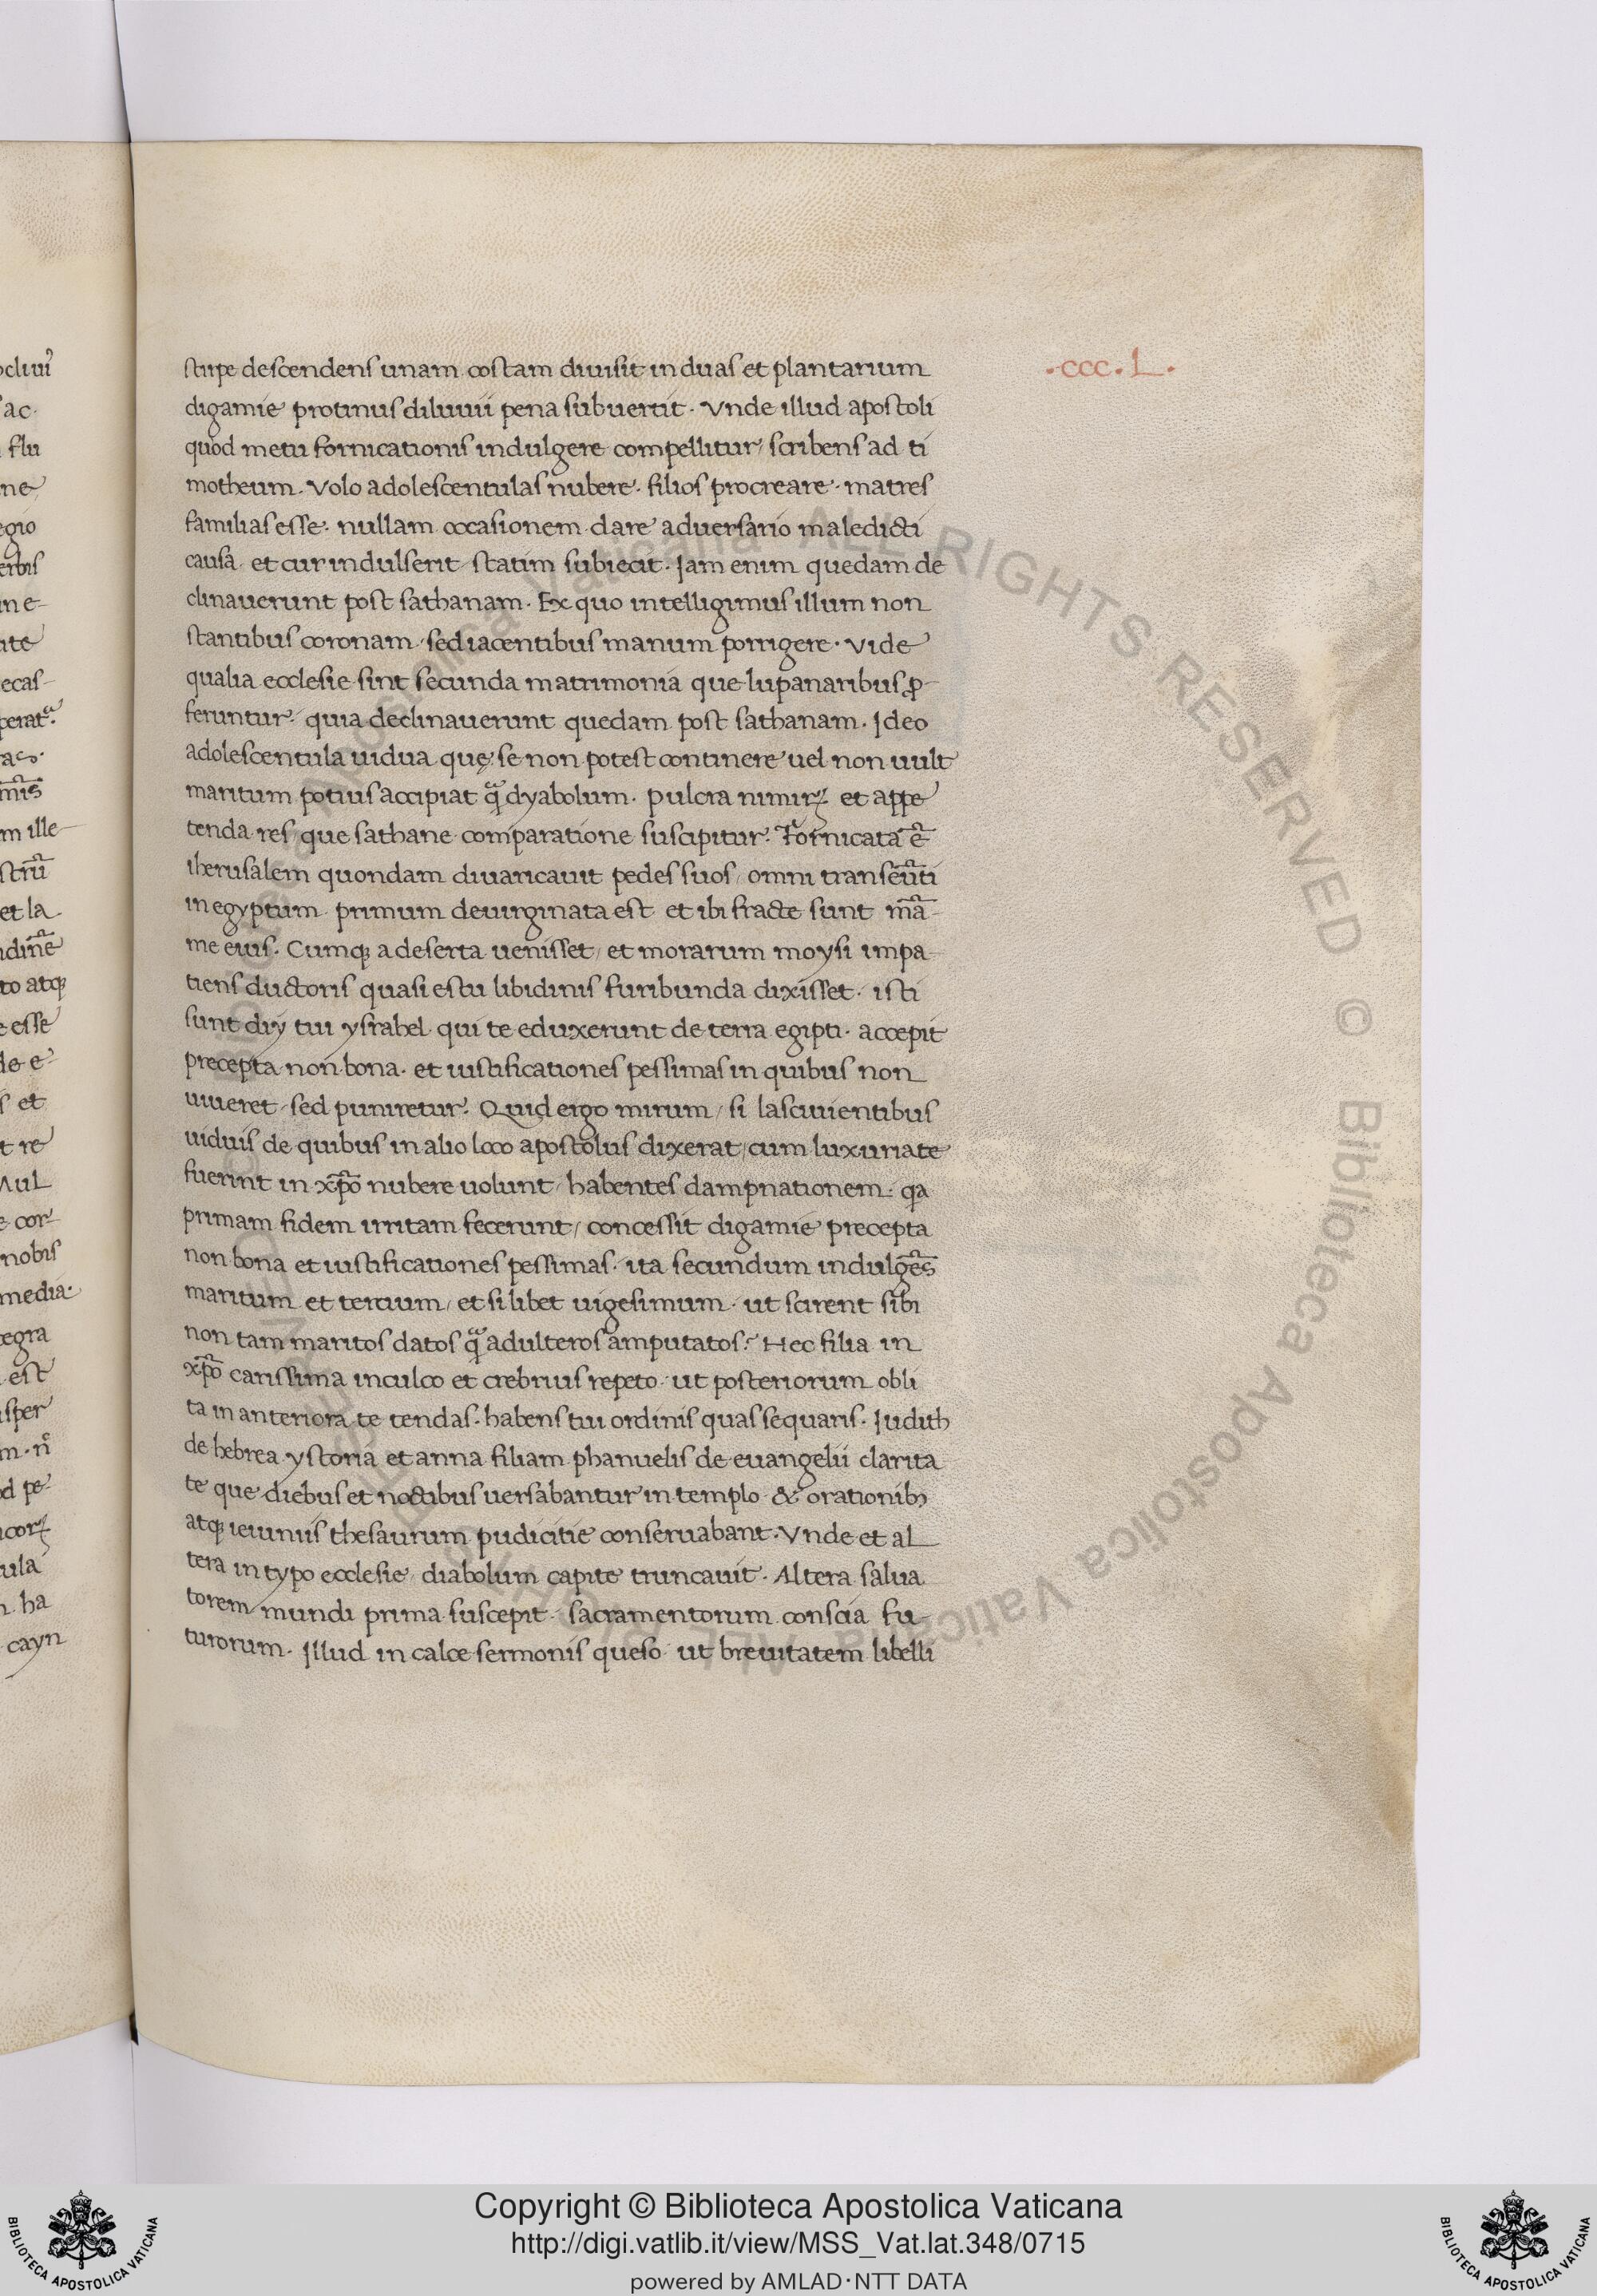 .ccc.L.
stirpe descendens unam costam diuisit in duas et plantarium
digamie protinus diluuii pena subuertit. Vnde illud apostoli
quod metu fornicationis indulgere compellitur/ scribens ad ti
motheum. Volo adolescentulas nubere. filios procreare. matres
familias esse. nullam occasionem dare aduersario maledicti
causa. et cur indulserit statim subiecit. Jam enim quedam de
clinauerunt post sathanam. Ex quo intelligimus illum non
stantibus coronam/ sed iacentibus manum porrigere. Vide
qualia ecclesie sint secunda matrimonia que lupanaribus ꝓ-
feruntur. quia declinauerunt quedam post sathanam. Ideo
adolescentula uidua quę se non potest continere uel non uult
maritum potius accipiat qᷓ dyabolum. pulcra nimiꝝ et appe
tenda res que sathane comparatione suscipitur. Fornicata ē
iherusalem quondam diuaricauit pedes suos/ omni transeūti
in egyptum primum deuirginata est et ibi fracte sunt mā-
me eius. Cumq; a deserta uenisset/ et morarum moysi impa-
tiens ductoris quasi estu libidinis furibunda dixisset. isti
sunt dij tui ysrahel qui te eduxerunt de terra egipti. accepit
precepta non bona. et iustificationes pessimas in quibus non
uiueret/ sed puniretur. Quid ergo mirum/ si lasciuientibus
uiduis de quibus in alio loco apostolus dixerat/ cum luxuriate
fuerint in xp̄o nubere uolunt/ habentes dampnationem. qa
primam fidem irritam fecerunt/ concessit digamie precepta
non bona et iustificationes pessimas. ita secundum indulgēs
maritum et tertium/ et si libet uigesimum. ut scirent sibi
non tam maritos datos qᷓ adulteros amputatos? Hec filia in
xp̄o carissima inculco et crebrius repeto. ut posteriorum obli
ta in anteriora te tendas. habens tui ordinis quas sequaris. Iudith
de hebrea ystoria et anna filiam phanuelis de euangelii clarita
te que diebus et noctibus uersabantur in templo & orationib;
atq; ieiuniis thesaurum pudicitie conseruabant. Vnde et al
tera in typo ecclesie/ diabolum capite truncauit. Altera salua
torem mundi prima suscepit sacramentorum conscia fu-
turorum. Illud in calce sermonis queso ut breuitatem libelli
Copyright © Biblioteca Apostolica Vaticana
http://digi.vatlib.it/view/MSS_Vat.lat.348/0715
powered by AMLAD·NTT DATA